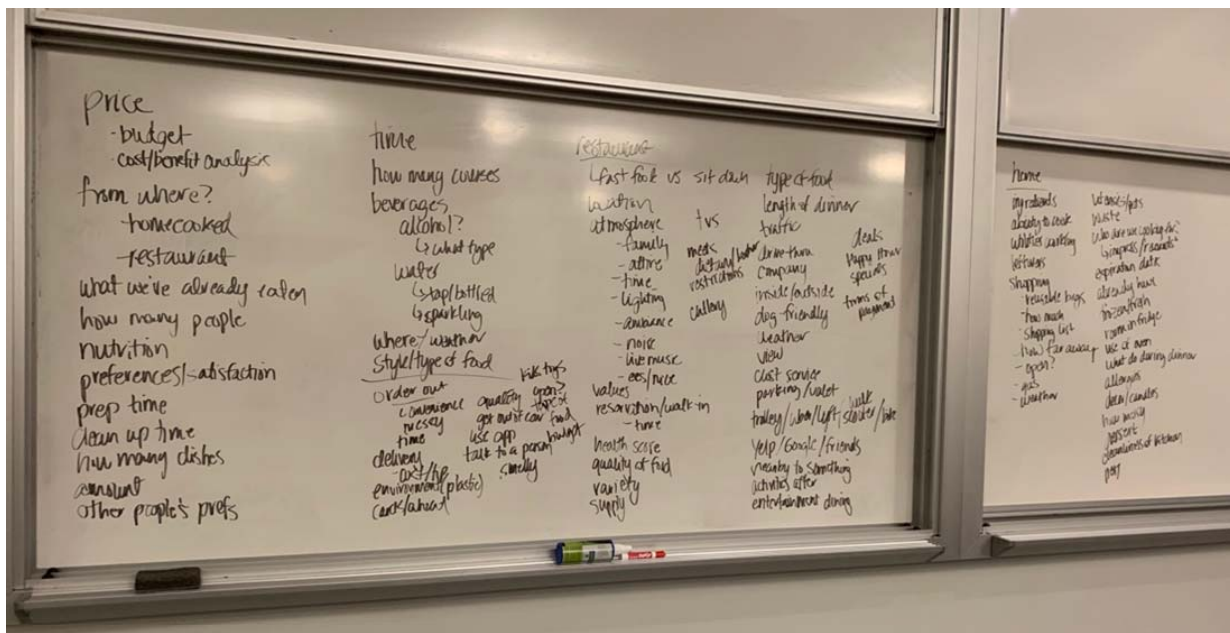 price
-budget
-cost/benefit analysis
from where?
-homecooked
-restaurant
what we've already eaten
how many people
nutrition
preferences/satisfaction
prep time
clean up time
how many dishes
amount
other people's prefs
time
how many courses
beverages
alcohol?
↳what type
water
↳tap/bottled
↳sparkling
where/weather
style/type of food
order out
convenience
messy
time
delivery
-cost/tip
environment (plastic)
quality
open?
type of food
get out of car
use app
budget
talk to a person
smelly
restaurant
↳fast food vs sit down
location
atmosphere
-family
-attire
-time
-lighting
-ambiance
-noise
-live music
values
reservation/walk-in
-time
health score
quality of food
variety
supply
tvs
meets
restrictions
type of food
length of dinner
traffic
drive-thru
company
inside/outside
dog-friendly
weather
view
cust service
parking/valet
Yelp/Google/friends
nearby to something
activities after
entertainment during
deals
happy hour
specials
forms of payment
home
ingredients
ability to cook
utilities working
leftovers
shopping
-reusable bags
-how much
-shopping list
-how far away
-open?
-gas
-weather
utensils/pots
waste
who are we cooking for?
expiration date
already have
frozen/fresh
room in fridge
use of oven
what do during dinner
allergies
how messy
dessert
cleanliness of kitchen